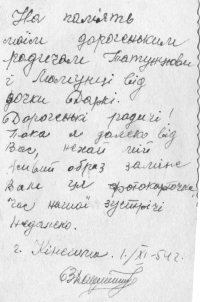 На пам'ять
моїм дорогеньким
родичам Татунцьови
і Мамунці від
дочки Дарки.
Дорогенькі родичі!
Поки я далеко від
Вас, нехай мій
живий образ замінє
Вам ця фотокарточка
час нашої зустрічі
недалеко.
г. Кінешма. 1/XI-54 г.